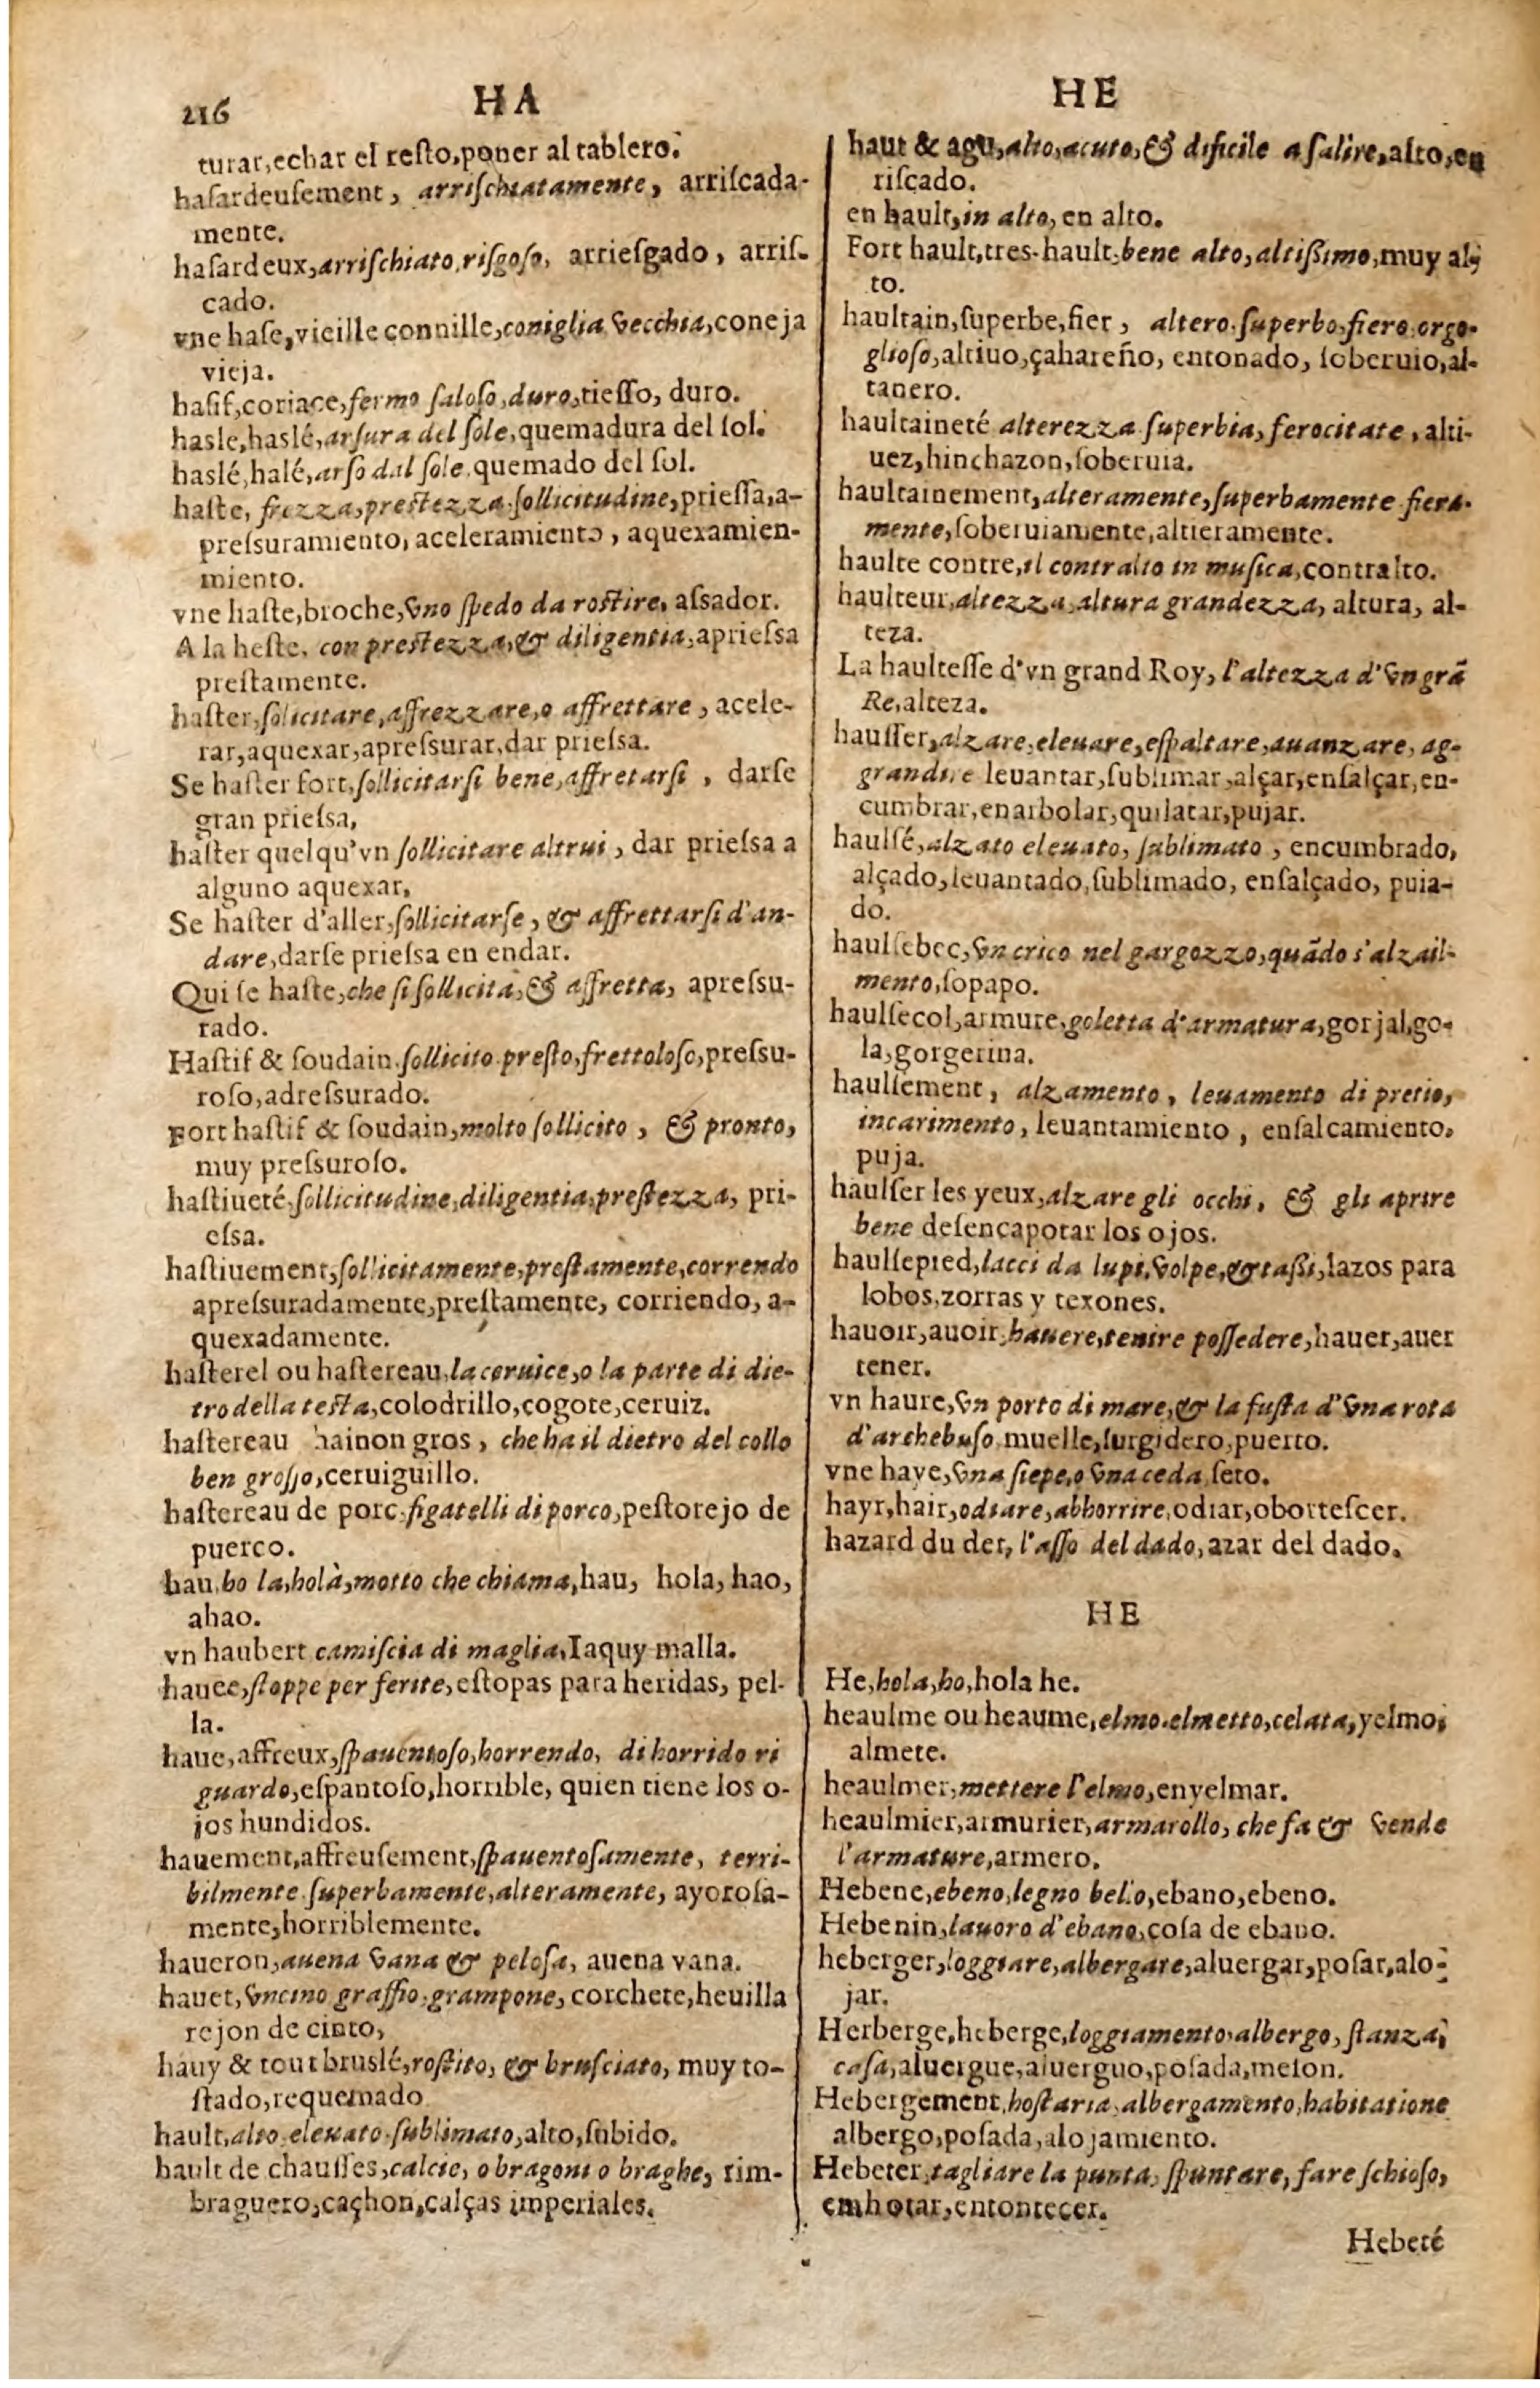 216 HA HE
turar,echar el resto,poner al tablero.
hasardeusement, arrischiatamente, arriscada-
mente.
hasardeux,arrischiato,risgoso, arriesgado, arris-
cado.
vne hase,vieille connille,coniglia vecchia,coneja
vieja.
hasif,coriace,fermo saloso,duro,tiesso, duro.
hasle,haslé,arsura del sole,quemadura del sol.
haslé,halé,arso dal sole,quemado del sol.
haste, frezza,prestezza,sollicitudine,priessa,a-
pressuramiento, aceleramiento, aquexamien-
miento.
vne haste,broche,vno spedo da rostire, assador.
A la heste, con prestezza,& diligentia,apriessa
prestamente.
haster,solicitare,affrezzare,o affrettare, acele-
rar,aquexar,apressurar,dar priessa.
Se haster fort,sollicitarsi bene,affretarsi, darse
gran priessa,
haster quelqu'vn sollicitare altrui, dar priessa a
alguno aquexar,
Se haster d'aller,sollicitarse, & affrettarsi d'an-
dare,darse priessa en endar.
Qui se haste,che si sollicita,& affretta, apressu-
rado.
Hastif & soudain,sollicito presto,frettoloso,pressu-
roso,adressurado.
Fort hastif & soudain,molto sollicito, & pronto,
muy pressuroso.
hastiueté,sollicitudine,diligentia,prestezza, pri-
essa.
hastiuement,sollicitamente,prestamente,correndo
apressuradamente,prestamente, corriendo, a-
quexadamente.
hasterel ou hastereau,la ceruice,o la parte di die-
tro della testa,colodrillo,cogote,ceruiz.
hastereau hainon gros, che ha il dietro del collo
ben grosso,ceruiguillo.
hastereau de porc,figatelli di porco,pestorejo de
puerco.
hau,ho la,holà,motto che chiama,hau, hola, hao,
ahao.
vn haubert camiscia di maglia,Iaquy malla.
hauce,stoppe per ferite,estopas para heridas, pel-
la.
haue,affreux,spauentoso,horrendo, di horrido ri
guardo,espantoso,horrible, quien tiene los o-
jos hundidos.
hauement,affreusement,spauentosamente, terri-
bilmente superbamente,alteramente, ayorosa-
mente,horriblemente.
haueron,auena vana & pelosa, auena vana.
hauet,vncino graffio,grampone, corchete,heuilla
rejon de cinto,
hauy & tout bruslé,rostito, & brusciato, muy to-
stado,requemado
hault,alto,eleuato sublimato,alto,subido.
hault de chausses,calcie, o bragoni o braghe, rim-
braguero,caçhon,calças imperiales.
haut & agu,alto,acuto,& dificile a salire,alto,en
riscado.
en hault,in alto, en alto.
Fort hault,tres-hault,bene alto,altissimo,muy al-
to.
haultain,superbe,fier, altero,superbo,fiero,orgo-
glioso,altiuo,çahareño, entonado, soberuio,al-
tanero.
haultaineté alterezza superbia, ferocitate, alti-
uez,hinchazon,soberuia.
haultainement,alteramente,superbamente fiera-
mente,soberuiamente,altieramente.
haulte contre,il contralto in musica,contralto.
haulteur,altezza,altura grandezza, altura, al-
teza.
La haultesse d'vn grand Roy, l'altezza d'vn grã
Re,alteza.
hausser,alzare,eleuare,espaltare,auanzare, ag-
grandire leuantar,sublimar,alçar,ensalçar,en-
cumbrar,enarbolar,quilatar,pujar.
haulsé,alzato eleuato, sublimato, encumbrado,
alçado,leuantado,sublimado, ensalçado, puia-
do.
haulsebec,vn crico nel gargozzo,quãdo s'alzail-
mento,sopapo.
haulsecol,armure,goletta d'armatura,gorjal,go-
la,gorgerina.
haulsement, alzamento, leuamento di pretio,
incarimento, leuantamiento, ensalcamiento,
puja.
haulser les yeux,alzare gli occhi, & gli aprire
bene desencapotar los ojos.
haulsepied,lacci da lupi,volpe,& tassi,lazos para
lobos,zorras y texones.
hauoir,auoir,hauere,tenire possedere,hauer,auer
tener.
vn haure,vn porto di mare,& la fusta d'vna rota
d'archebuso muelle,surgidero,puerto.
vne haye,vna siepe,o vna ceda seto.
hayr,hair,odiare,abhorrire,odiar,obortescer.
hazard du det, l'asso del dado,azar del dado.
HE
He,hola,ho,hola he.
heaulme ou heaume,elmo,elmetto,celata,yelmo,
almete.
heaulmer,mettere l'elmo,enyelmar.
heaulmier,armurier,armarollo, che fa & vende
l'armature,armero.
Hebene,ebeno,legno bello,ebano,ebeno.
Hebenin,lauoro d'ebano,cosa de ebano.
heberger,loggiare,albergare,aluergar,posar,alo-
jar.
Herberge,heberge,loggiamento,albergo, stanza,
casa,aluergue,aluerguo,posada,meson.
Hebergement,hostaria,albergamento,habitatione
albergo,posada,alojamiento.
Hebeter,tagliare la punta, spuntare, fare schioso,
emhotar,entontecer.
Hebeté